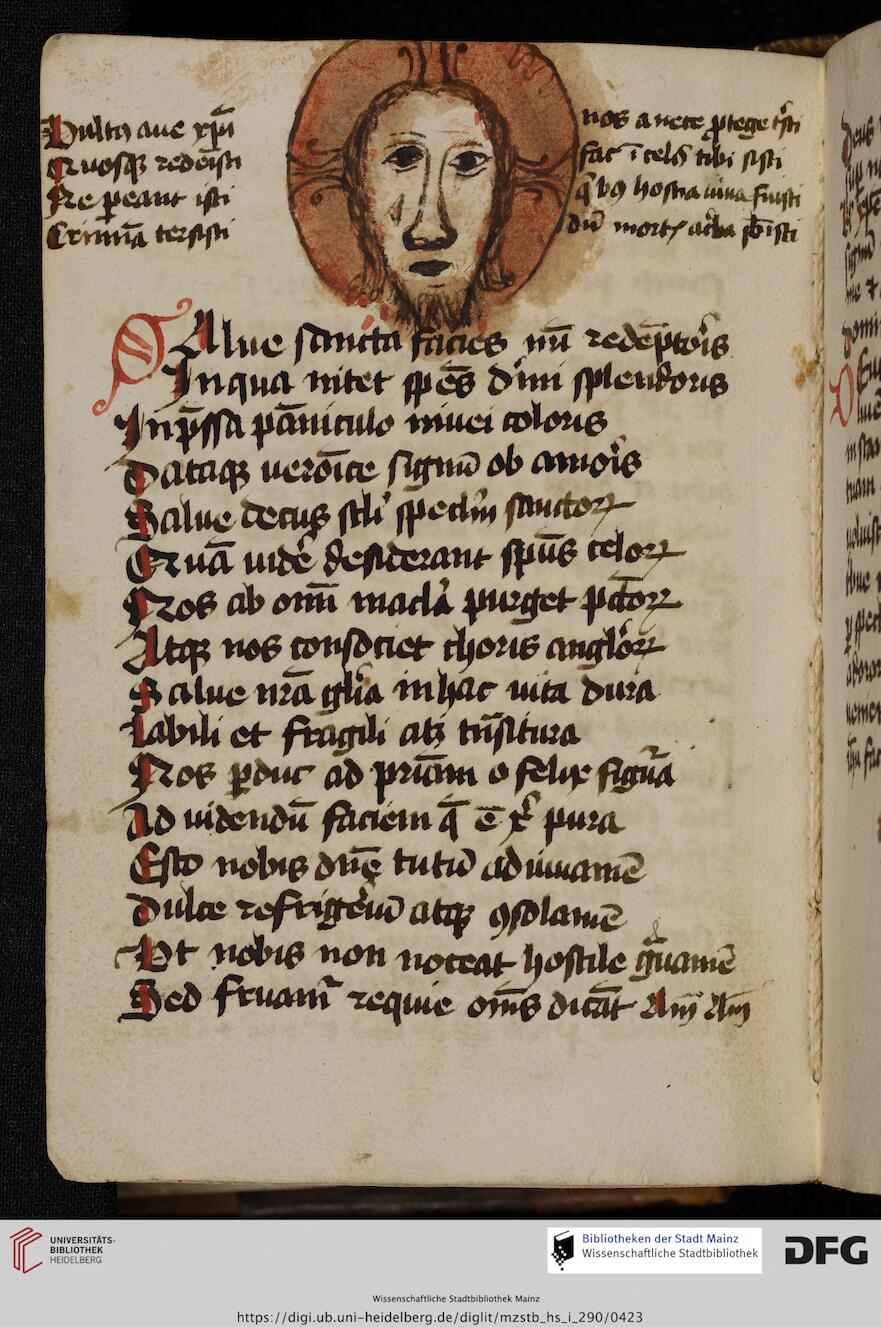 Vultꝯ aue xp̄i
Quosqꝫ redēisti
Ne ꝑeant isti
Crimīa tersisti
nos a nece ꝓtege tͥsti
fac ī celꝭ tibi sisti
q̄ bꝯ hostia uiua fuisti
dū mortꝭ
SAlue sancta facies nr̄i redēptoͥs
In qua nitet spēs diͥni splendoris
Inp̄ssa pāniculo niuei coloris
Dataqꝫ ueroīce signū ob amoͥs
Salue decus sclͥi speclͫ sanctorꝝ
Quā uidēͤ desiderant spūs celorꝝ
Nos ab omī maclͣa purget pctō​rꝝ
Atqꝫ nos consociet choris anglͦorꝝ
Salue nr̄a glͥa in hac uita dura
Labili et fragili atqꝫ trāsitura
Nos ꝑduc ad priam̄ o felix figuͬa
Ad uidendū faciem q̄ ē xͥ pura
Esto nobis dn̄e tutū adiuuamē
Dulce refrigeͥū atqꝫ ꝯsolamē
Vt nobis non noceat hostile gͣuamē
Sed fruamͬ requie om̄s dicāt Am̄ Am̄
UNIVERSITÄTS-
BIBLIOTHEK
HEIDELBERG
Bibliotheken der Stadt Mainz
Wissenschaftliche Stadtbibliothek
DFG
Wissenschaftliche Stadtbibliothek Mainz
https://digi.ub.uni-heidelberg.de/diglit/mzstb_hs_i_290/0423